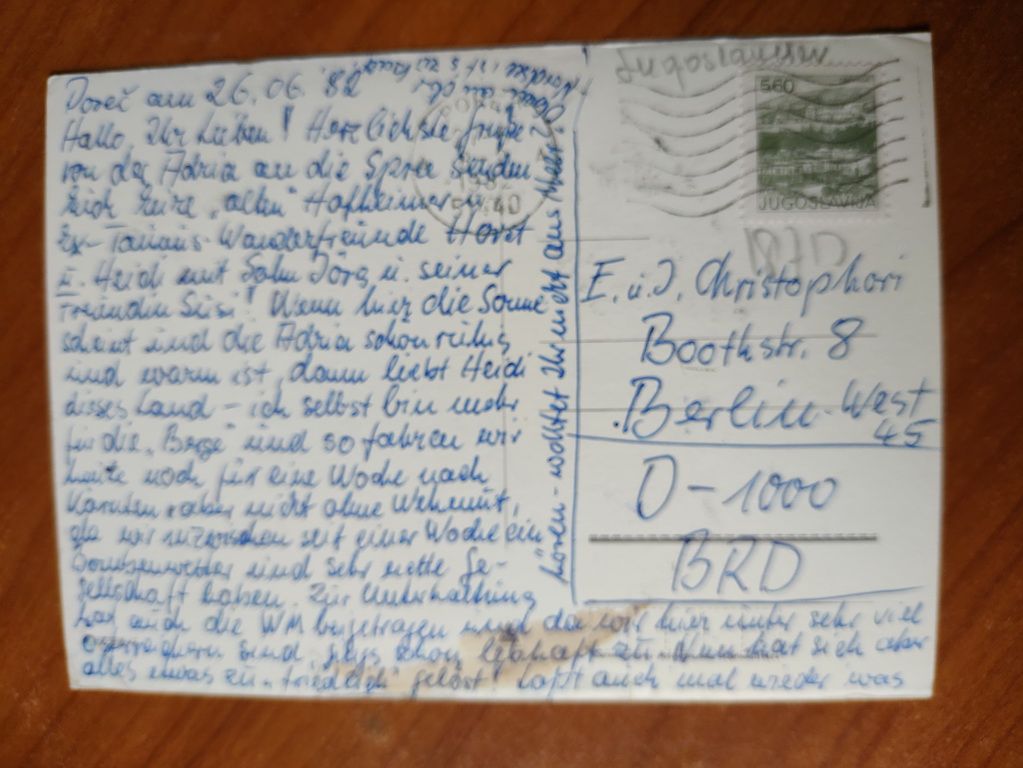 Poreč am 26.06.82
Hallo, Ihr Lieben! Herzlichste Grüße
von der Adria an die Spree senden
Euch Eure „alten“ Hofheimer u.
Ex-Taunus-Wanderfreunde Horst
u. Heidi mit Sohn Jörg u. seiner
Freundin Susi! Wenn hier die Sonne
scheint und die Adria schön ruhig
und warm ist, dann liebt Heidi
dieses Land - ich selbst bin mehr
für die „Berge“ und so fahren wir
heute noch für eine Woche nach
Kärnten, aber nicht ohne Wehmut,
da wir inzwischen seit einer Woche ein
Bombenwetter und sehr nette Ge-
sellschaft haben. Zur Unterhaltung
hat auch die WM beigetragen und da wir hier unter sehr viel
Österreichern sind, ging's schon lebhaft zu. Nun hat sich aber
alles etwas zu „friedlich“ gelöst! Laßt auch mal wieder was
hören - möchtet Ihr nicht ans Meer?
Jugoslawien
560
JUGOSLAVIJA
BRD
E. u. J. Christophori
Boothstr. 8
Berlin-West
45
D-1000
BRD